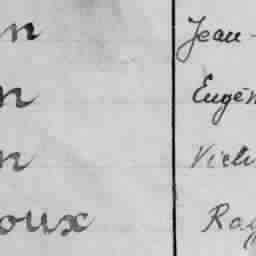 n Jean-
n Eugén
n Vict
oux Ray